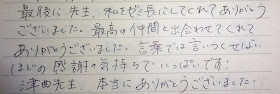 最後に先生、私をゼミ長にしてくれてありがとう
ございました。最高の仲間と出会わせてくれて
ありがとうございました。言葉では言いつくせない
ほどの感謝の気持ちでいっぱいです!
津曲先生、本当にありがとうございました!